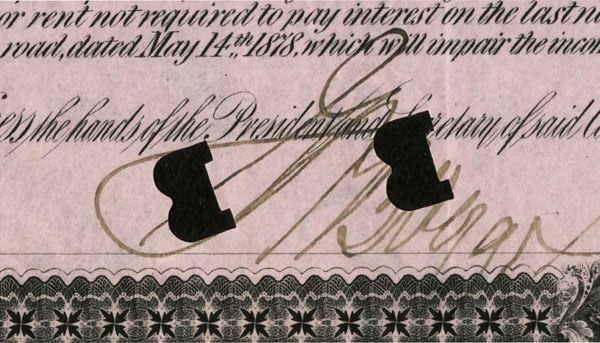 or rent not required to pay interest on the last n
road, dated May 14th, 1878, which will impair the incom
ess the hands of the President and Secretary of said C